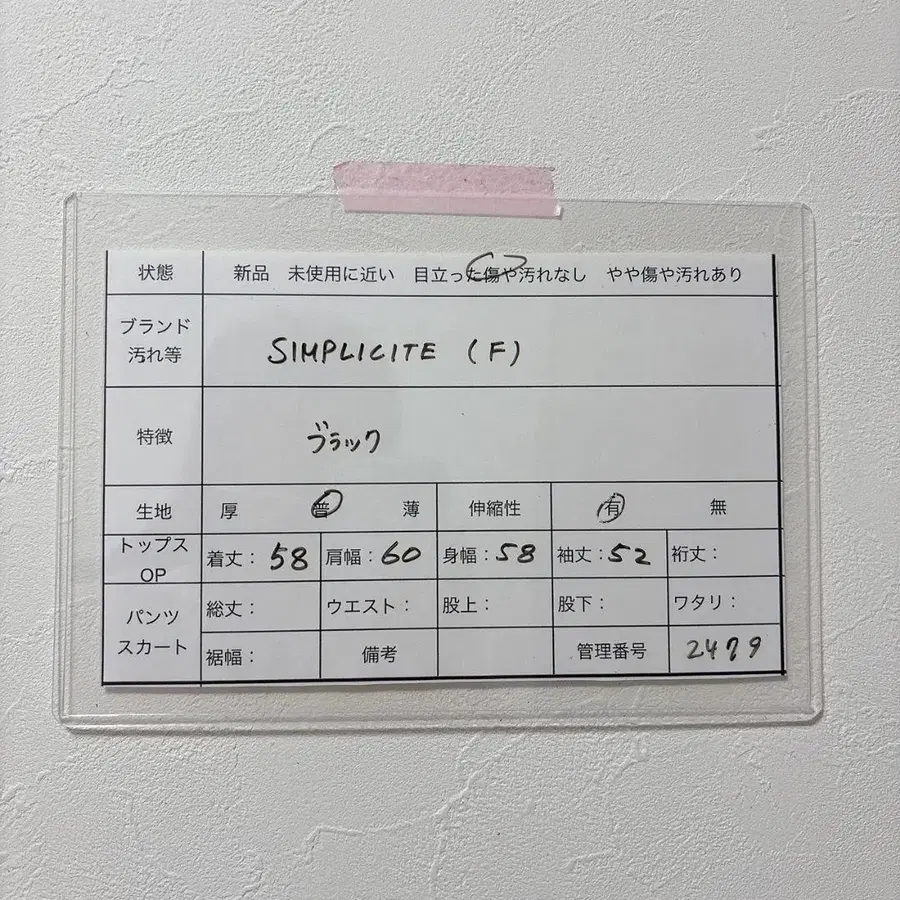 状態 新品 未使用に近い 目立った傷や汚れなし やや傷や汚れあり
ブランド
汚れ等
SIMPLICITE (F)
特徴 ブラック
生地 厚 普 薄 伸縮性 有 無
トップス
OP
着丈：58 肩幅：60 身幅：58 袖丈：52 裄丈：
パンツ
スカート
総丈： ウエスト： 股上： 股下： ワタリ：
裾幅： 備考 管理番号 2479